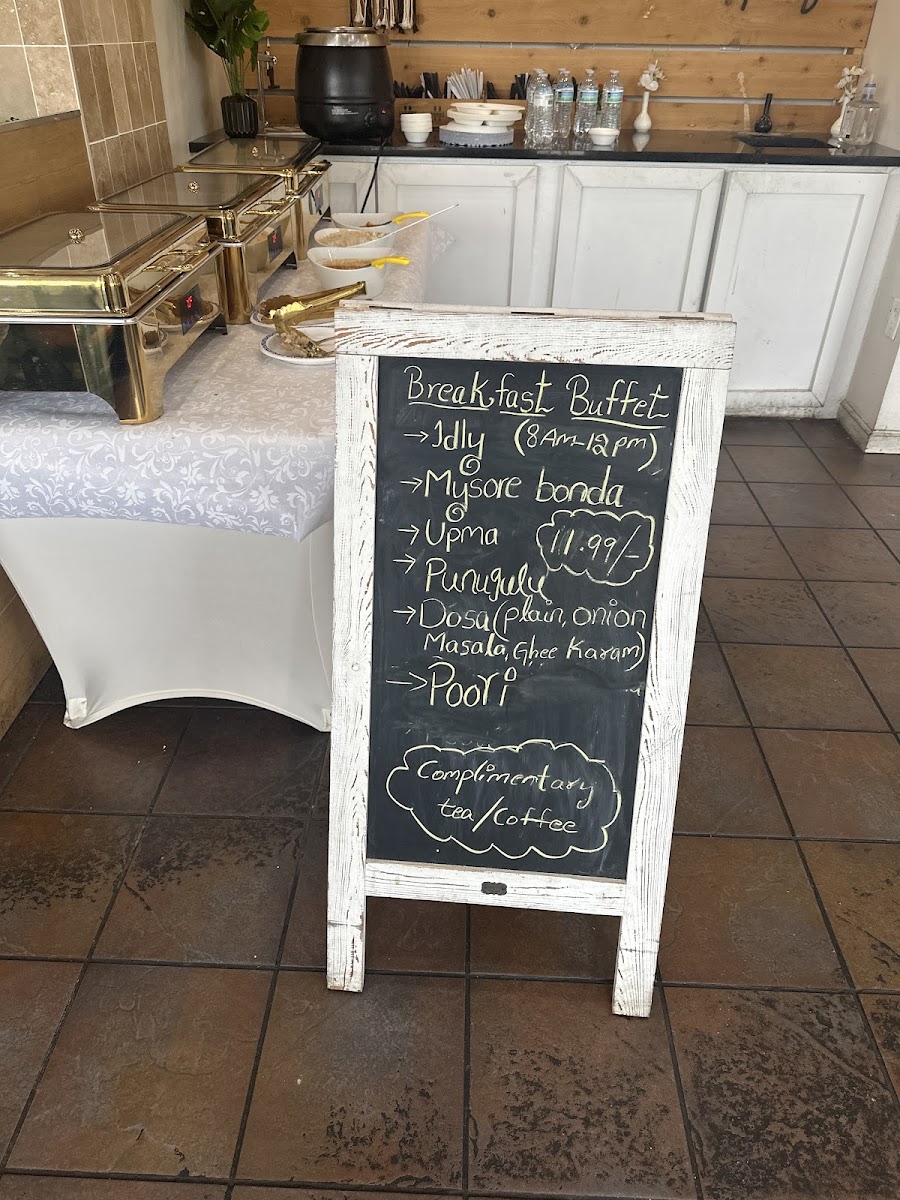 Breakfast Buffet
→Idly (8Am-12pm)
→Mysore bonda
→Upma 11.99/-
→Punugulu
→Dosa(plain, onion
Masala, Ghee Karam)
→Poori
Complimentary
tea/Coffee